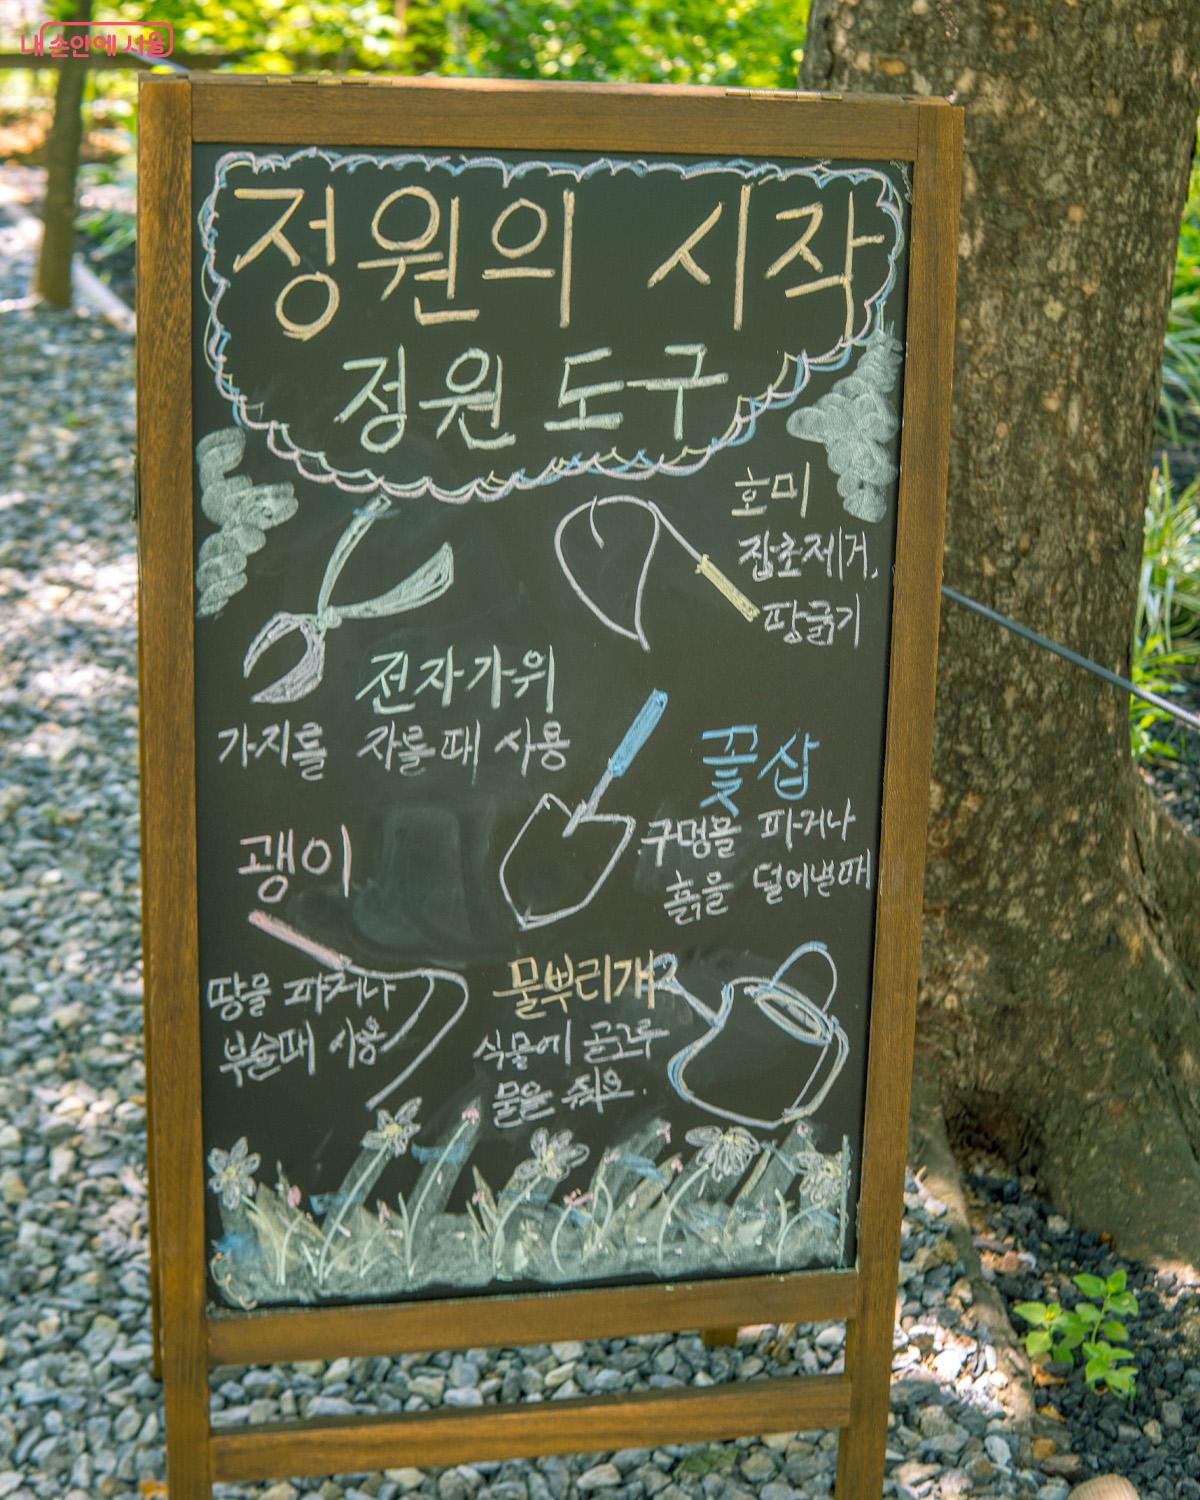 내 손안에 서울
정원의 시작
정원 도구
호미
잡초제거,
땅굵기
전자가위
가지를 자를때 사용
꽃삽
구멍을 파거나
흙을 덜어낼때
괭이
땅을 파거나
부술때 사용
물뿌리개
식물에 골고루
물을 줘요.